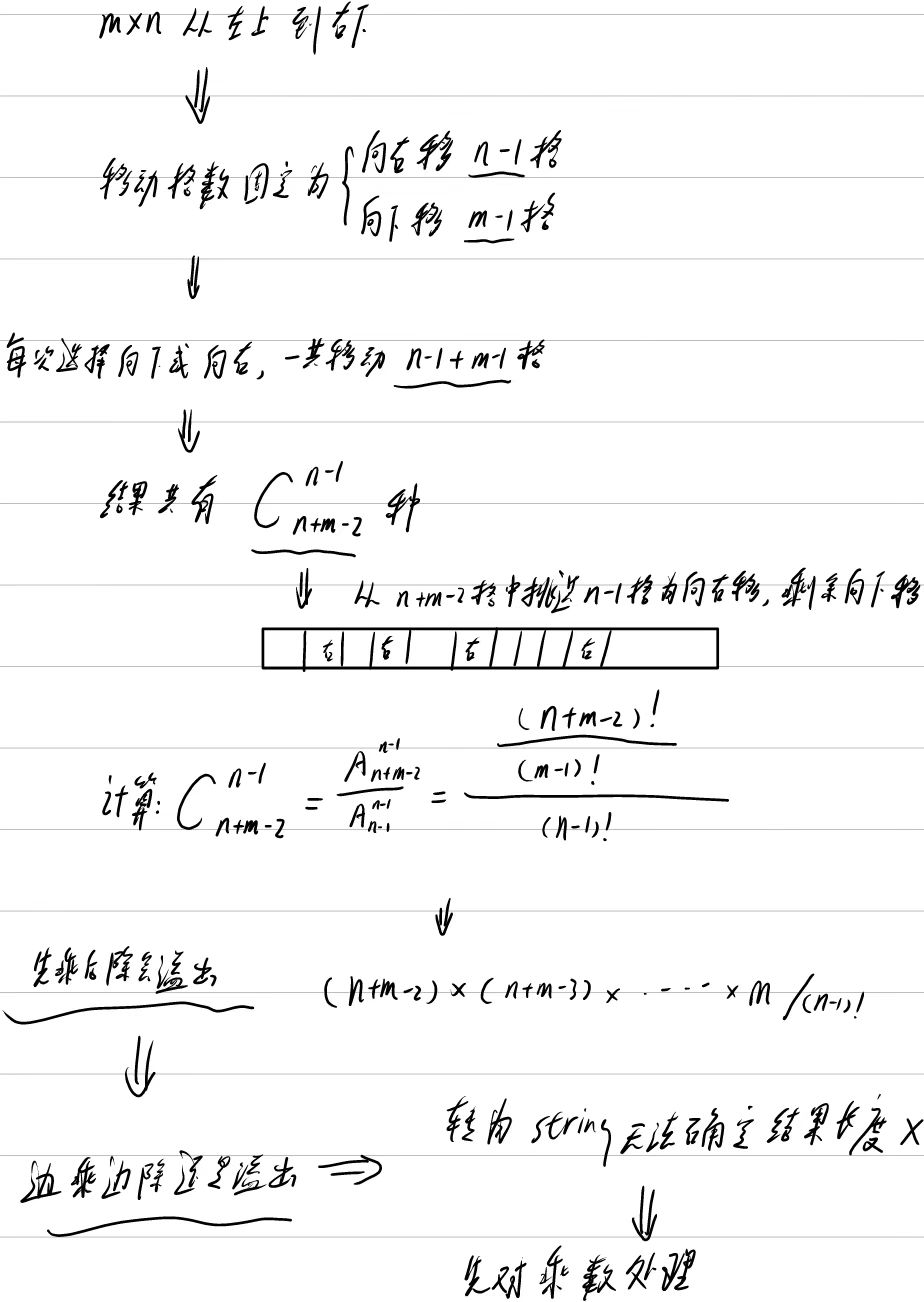 m×n 从左上到右下
⇓
移动格数固定为 { 向右移 n-1 格
向下移 m-1 格
⇓
每次选择向下或向右, 一共移动 n-1+m-1 格
⇓
结果共有 C_{n+m-2}^{n-1} 种
⇓ 从 n+m-2 格中挑选 n-1 格为向右移, 剩余向下移
右 右 右 右
计算: C_{n+m-2}^{n-1} = A_{n+m-2}^{n-1} / A_{n-1}^{n-1} = ((n+m-2)! / (m-1)!) / (n-1)!
⇓
先乘后除会溢出 (n+m-2) × (n+m-3) × ····· × m /(n-1)!
⇓
边乘边除还是溢出 ⇒ 转为 string 无法确定结果长度 ×
⇓
先对乘数处理